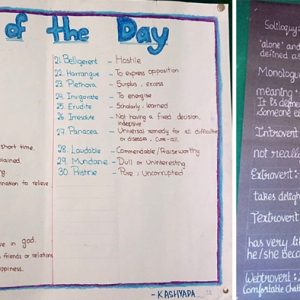 of the Day
21. Belligerent - Hostile
22. Harrangue - To express opposition
23. Plethora - Surplus, excess
24. Invigorate - To energise
25. Erudite - Scholarly, learned
26. Irresolute - Not having a fixed decision,
27. Panacea - Universal remedy for all difficulties
or diseases, cure-all.
28. Laudable - Commendable/Praiseworthy
29. Mundane - Dull or Uninteresting
30. Pristine - Pure, Uncorrupted
- KASHYADA
short time.
to relieve
ve in god.
friends or relations
happiness.
Soliloquy:
'alone' and
defined a
Monologu
meaning
It is
someone
Introvert
not really
Extrovert:
takes delight
Textrovert
has very li
he/she Beco
Webtrovert:
Comfortable Chatt